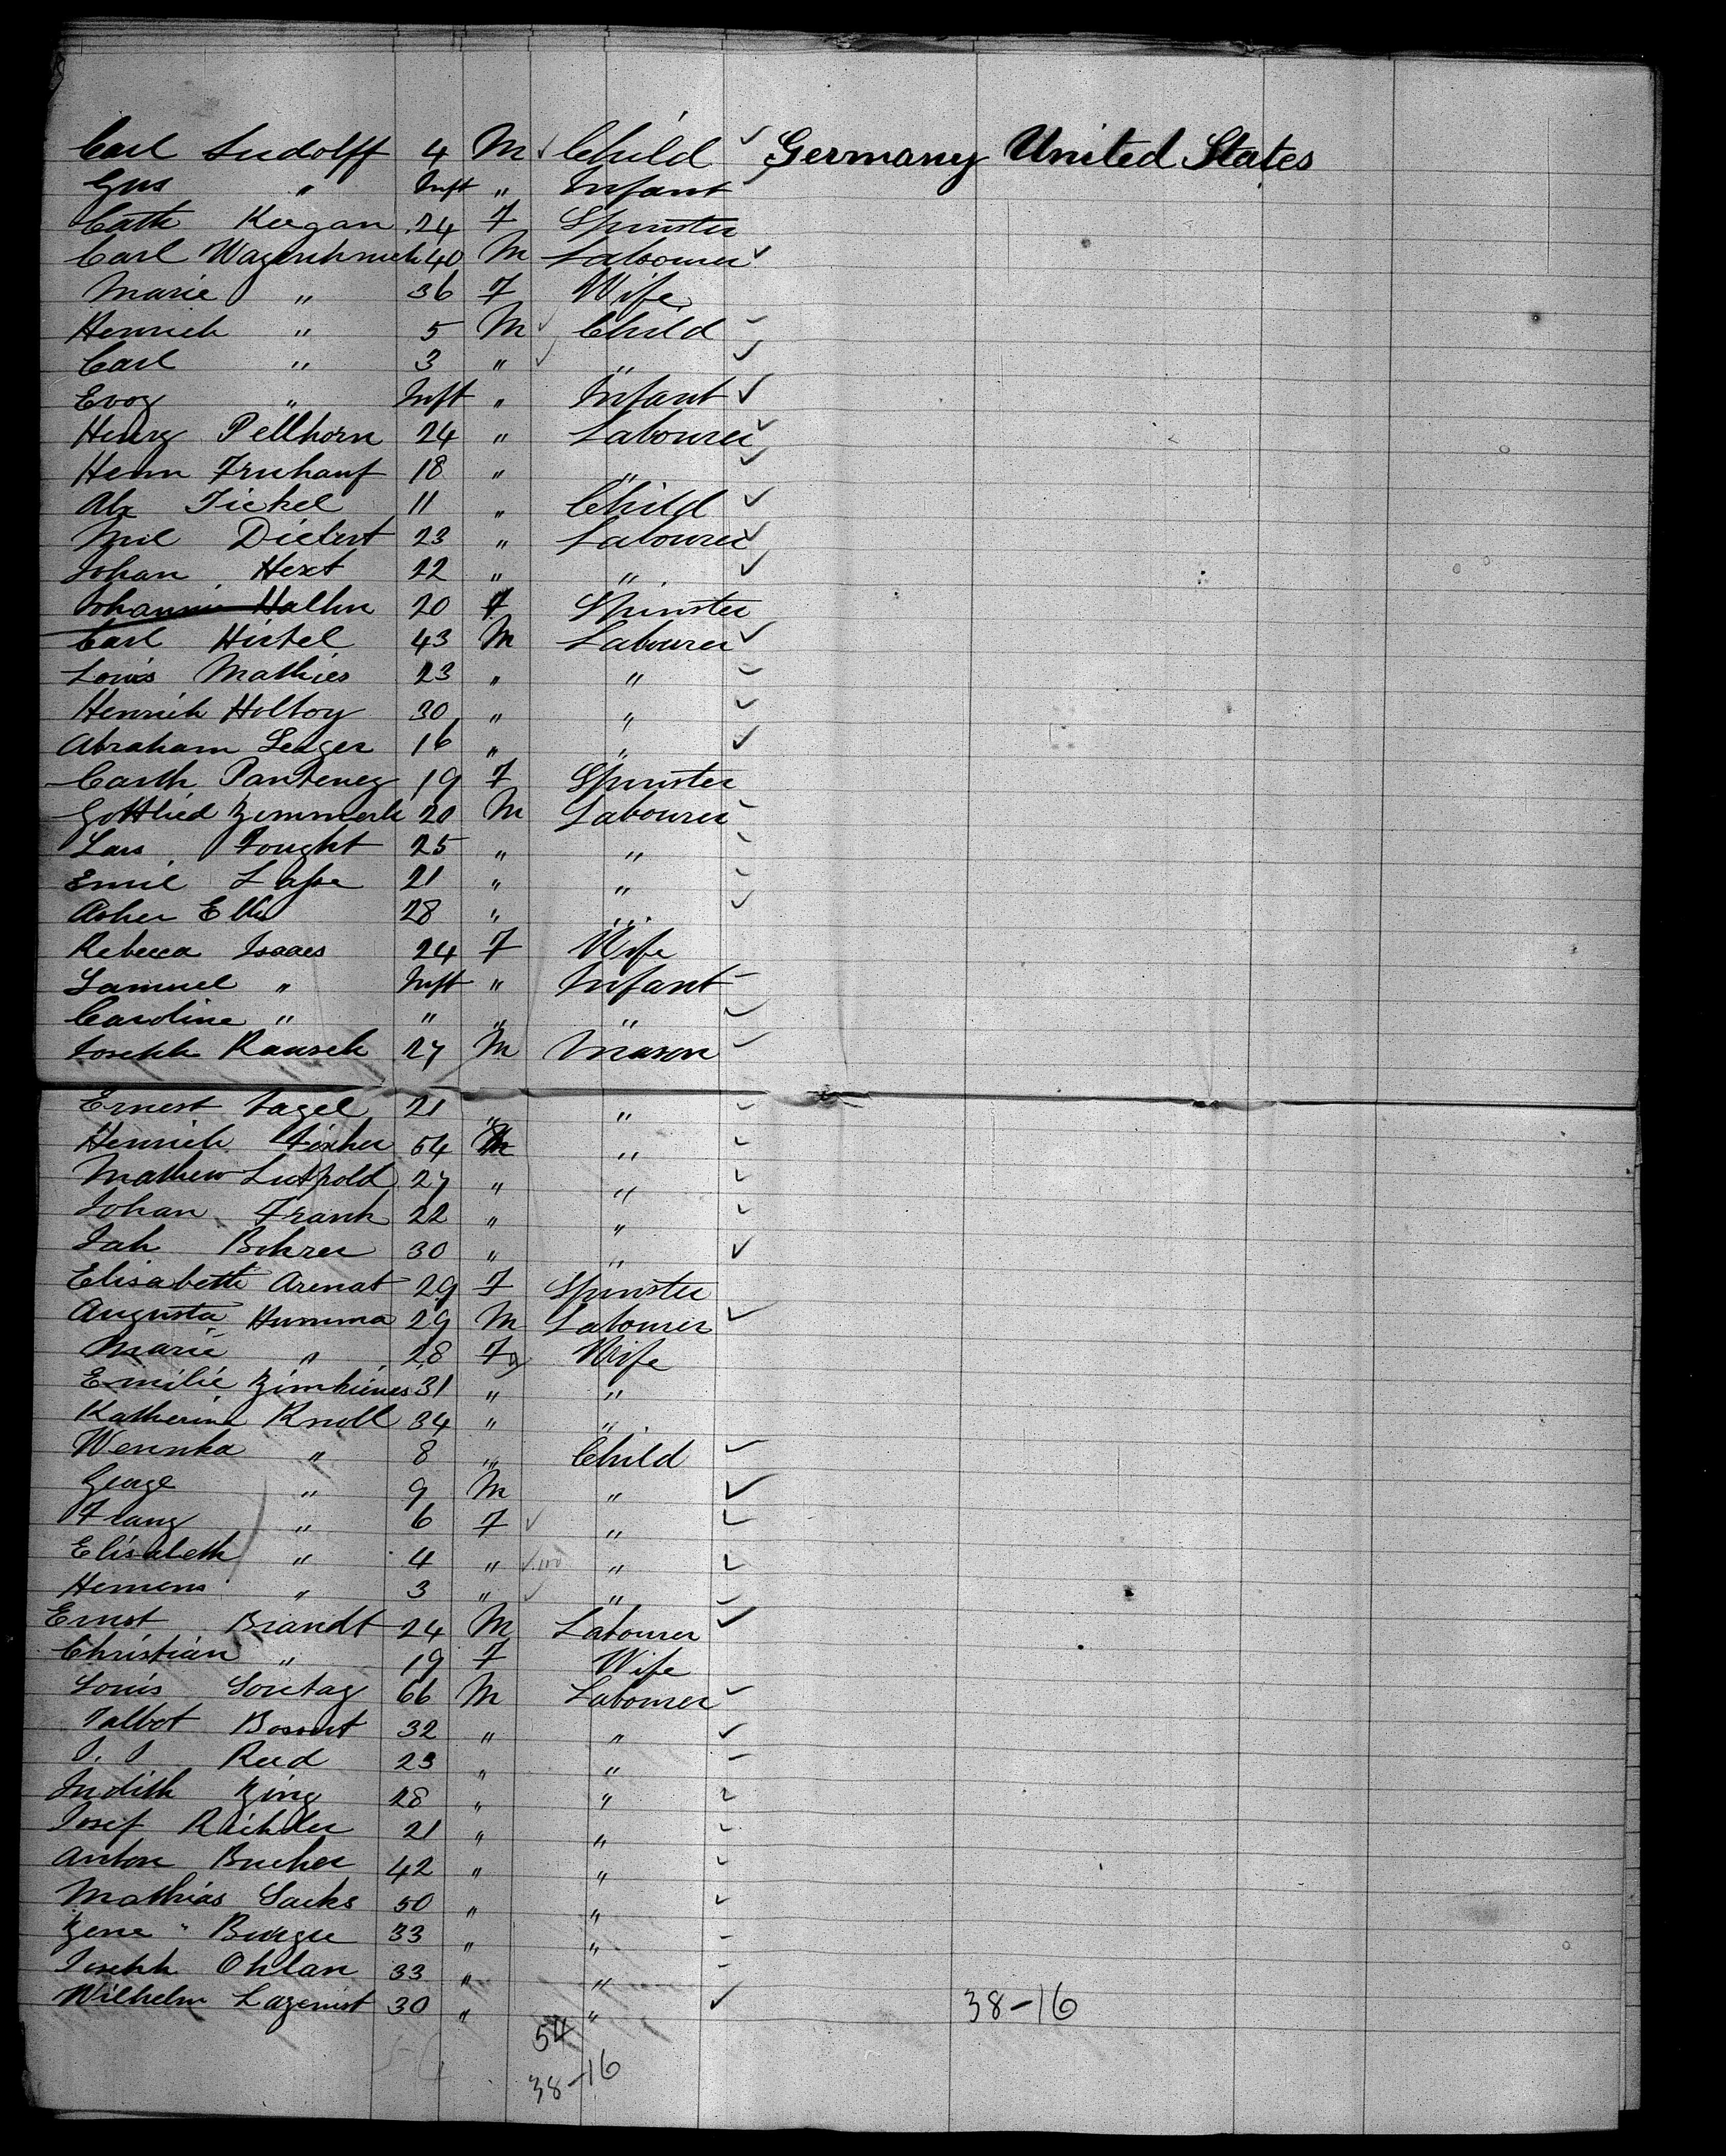 Carl Ludolff 4 M Child Germany United States
Gus " Inft " Infant
Cath Keegan 24 F Spinster
Carl 40 M Labourer
Marie " 36 F Wife
Henrich " 5 M Child
Carl " 3 " "
Evoy " Inft " Infant
Henry Pellhorn 24 " Labourer
Henn Fruhauf 18 " "
Alx Fickel 11 " Child
23 " Labourer
Johan Hext 22 " "
20 F Spinster
Carl Hirtel 43 M Labourer
Louis Mathies 23 " "
Henrich Holtoy 30 " "
Abraham Seager 16 " "
Carth Panteney 19 F Spinster
Gottlied Zimmerli 20 M Labourer
Lars Fought 25 " "
Emil 21 " "
Asher Ellis 28 " "
Rebecca Isaacs 24 F Wife
Samuel " Inft " Infant
Caroline " " " "
Joseph Rausch 27 M Mason
Ernest Jagel 21 " "
Henrich Fischer 54 M "
Mathew Luitpold 27 " "
Johan Frank 22 " "
Jak Bohrer 30 " "
Elisabeth Arenat 29 F Spinster
Augusta Humma 29 M Labourer
Marie " 28 F Wife
Emilie 31 " "
Katherine Knoll 34 " "
Wennka " 8 " Child
George " 9 M "
Franz " 6 F "
Elisabeth " 4 " "
Hemens " 3 " "
Ernst Brandt 24 M Labourer
Christian " 19 F Wife
Louis Sontag 66 M Labourer
Talbot Bossert 32 " "
J. J Reed 23 " "
Judith Zing 28 " "
Josef Richter 21 " "
Anton Bucher 42 " "
Mathias Sacks 50 " "
Zene Burger 33 " "
Joseph Ohlan 33 " "
Wilhelm 30 " " 38-16
54
38-16